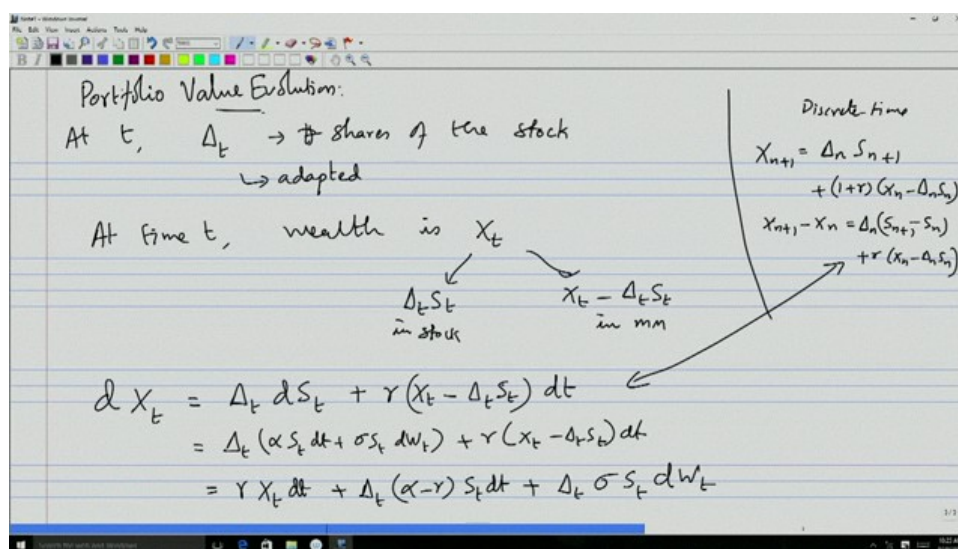 Note1 - Windows Journal
File Edit View Insert Actions Tools Help
B I
Portifolio Value Evolution:
At t, Δ_t → # shares of the stock
↳ adapted
At time t, wealth is X_t
Δ_t S_t
in stock
X_t − Δ_t S_t
in mm
dX_t = Δ_t dS_t + r(X_t − Δ_t S_t) dt
= Δ_t (α S_t dt + σ S_t dW_t) + r(X_t − Δ_t S_t) dt
= r X_t dt + Δ_t (α−r) S_t dt + Δ_t σ S_t dW_t
Discrete time
X_{n+1} = Δ_n S_{n+1}
+ (1+r)(X_n − Δ_n S_n)
X_{n+1} − X_n = Δ_n(S_{n+1} − S_n)
+ r(X_n − Δ_n S_n)
3/3
Search the web and Windows